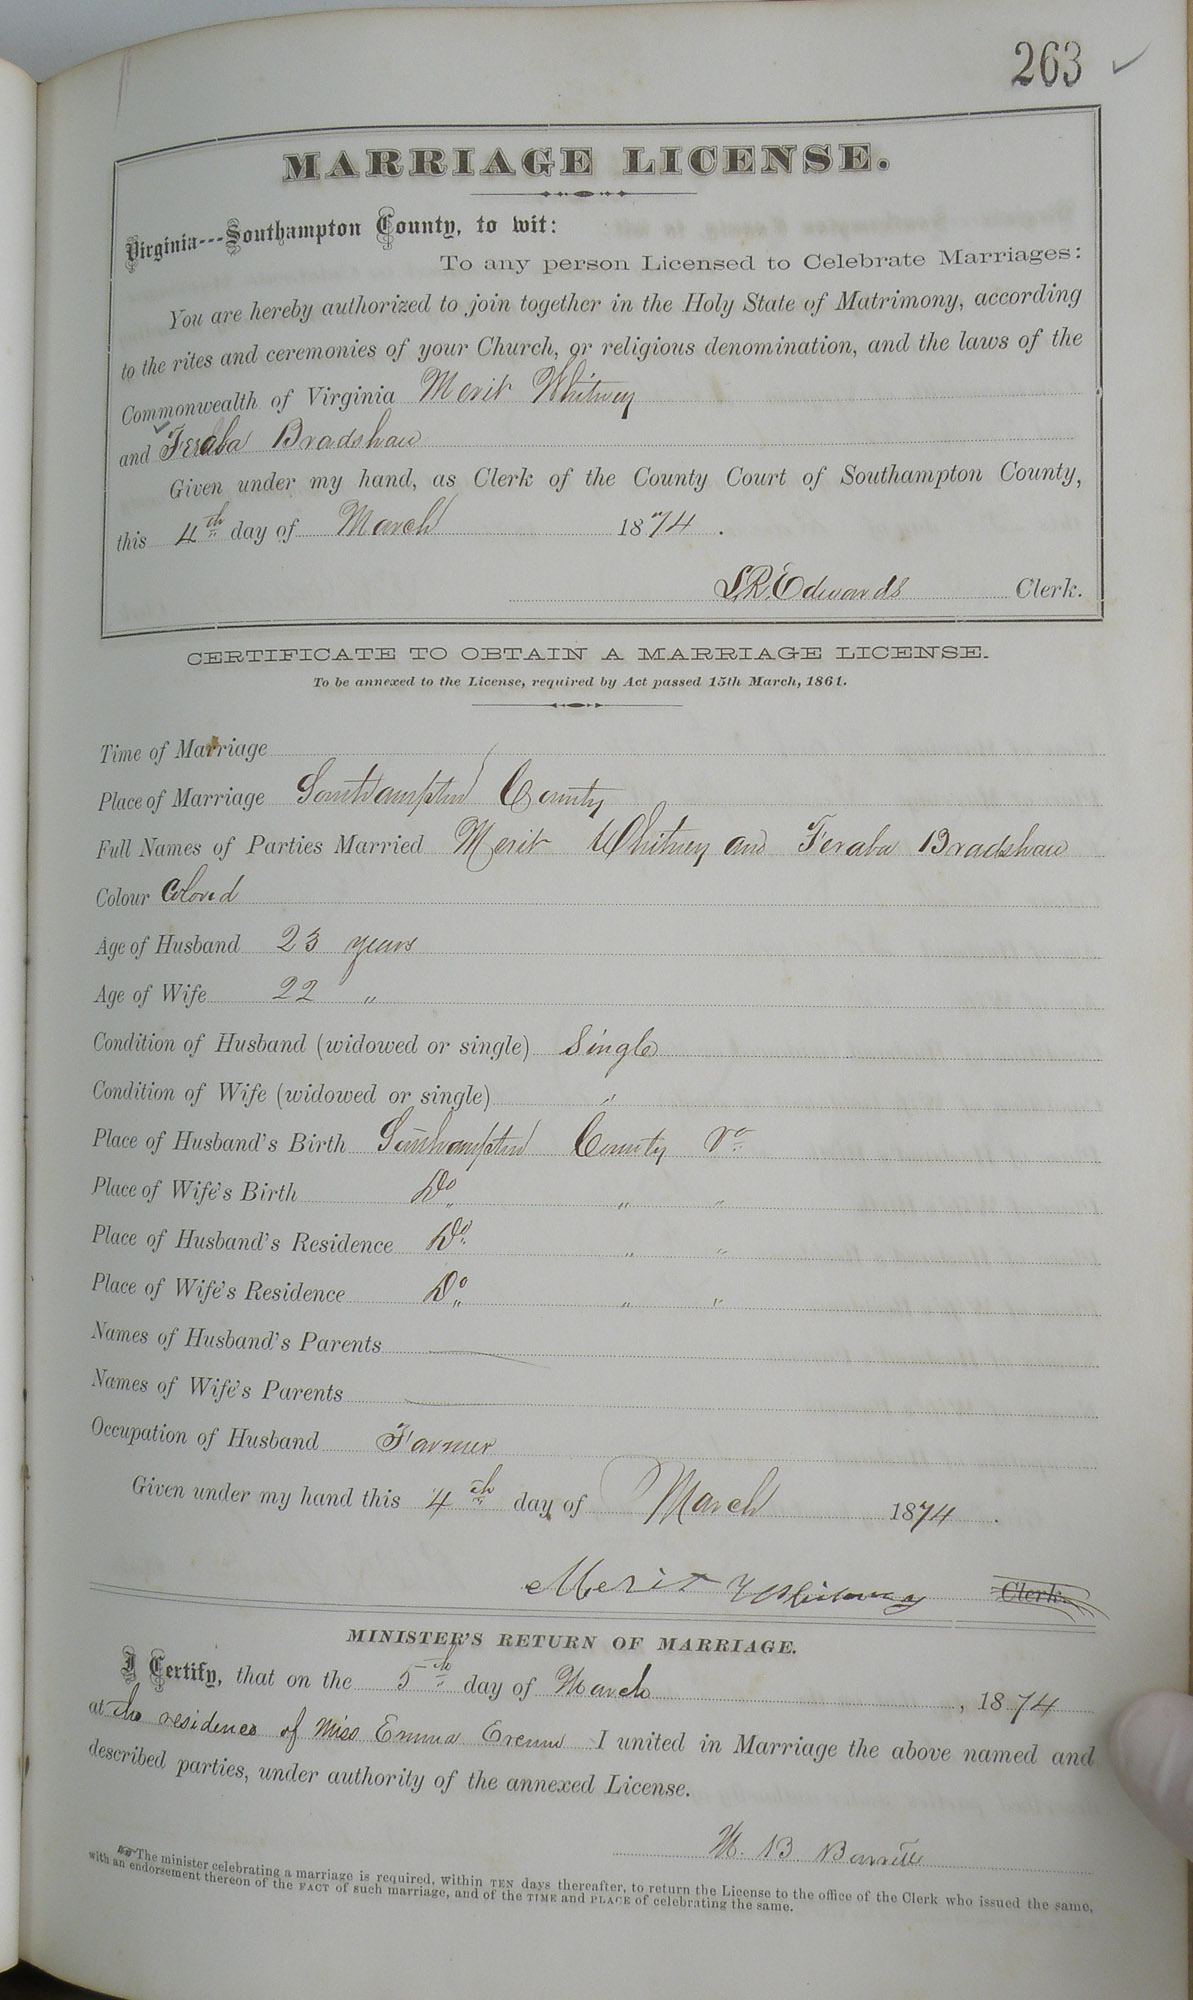 263
MARRIAGE LICENSE.
Virginia---Southampton County, to wit:
To any person Licensed to Celebrate Marriages:
You are hereby authorized to join together in the Holy State of Matrimony, according
to the rites and ceremonies of your Church, or religious denomination, and the laws of the
Commonwealth of Virginia Merit Whitney
and Feraba Bradshaw
Given under my hand, as Clerk of the County Court of Southampton County,
this 4th day of March 1874.
L.R. Edwards Clerk.
CERTIFICATE TO OBTAIN A MARRIAGE LICENSE.
To be annexed to the License, required by Act passed 15th March, 1861.
Time of Marriage
Place of Marriage Southampton County
Full Names of Parties Married Merit Whitney and Feraba Bradshaw
Colour Colored
Age of Husband 23 years
Age of Wife 22 "
Condition of Husband (widowed or single) Single
Condition of Wife (widowed or single) "
Place of Husband's Birth Southampton County Va
Place of Wife's Birth Do " "
Place of Husband's Residence Do " "
Place of Wife's Residence Do " "
Names of Husband's Parents
Names of Wife's Parents
Occupation of Husband Farmer
Given under my hand this 4th day of March 1874.
Merit Whitney Clerk.
MINISTER'S RETURN OF MARRIAGE.
I Certify, that on the 5th day of March, 1874
at the residence of Miss Emma I united in Marriage the above named and
described parties, under authority of the annexed License.
B.
The minister celebrating a marriage is required, within TEN days thereafter, to return the License to the office of the Clerk who issued the same,
with an endorsement thereon of the FACT of such marriage, and of the TIME and PLACE of celebrating the same.